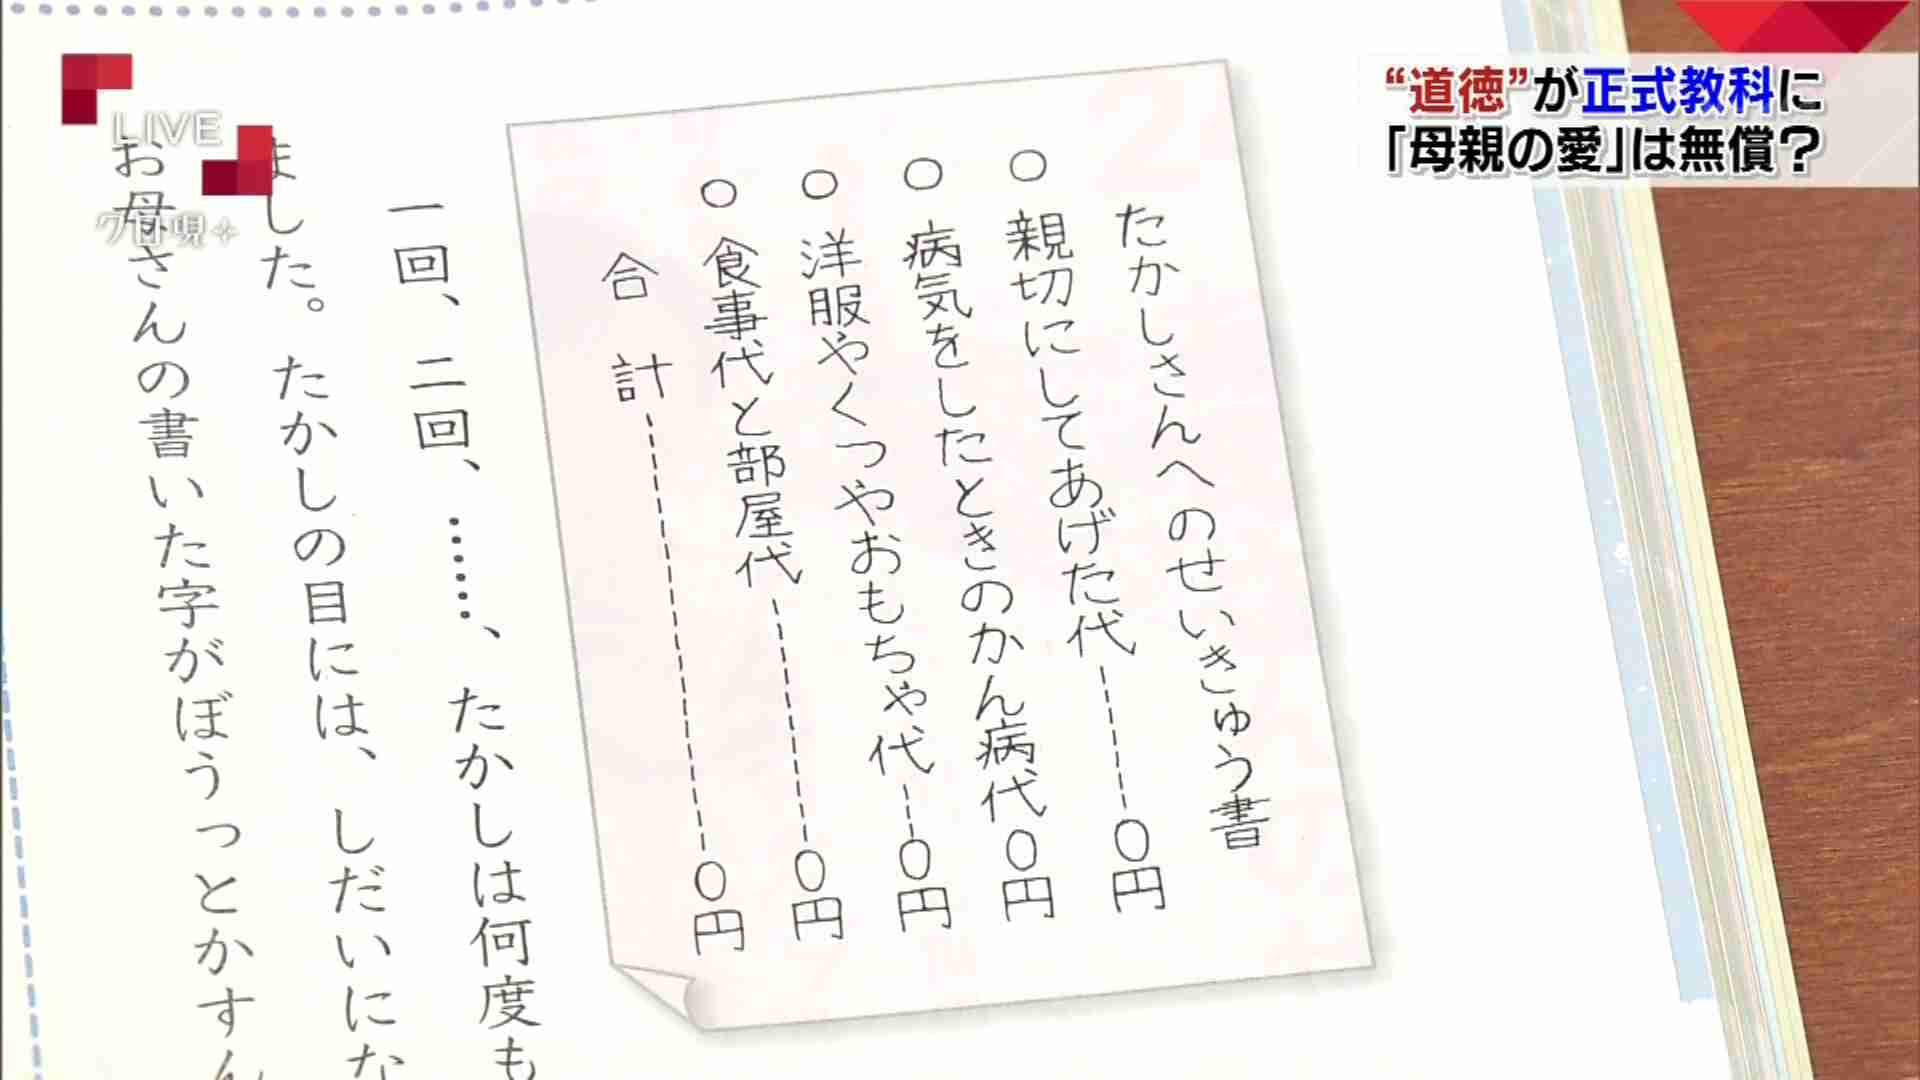 “道徳”が正式教科に
「母親の愛」は無償?
LIVE
クロ現+
たかしさんへのせいきゅう書
○ 親切にしてあげた代------0円
○ 病気をしたときのかん病代0円
○ 洋服やくつやおもちゃ代--0円
○ 食事代と部屋代----------0円
合 計------------------0円
一回、二回、……、たかしは何度も
ました。たかしの目には、しだいにな
お母さんの書いた字がぼうっとかすん